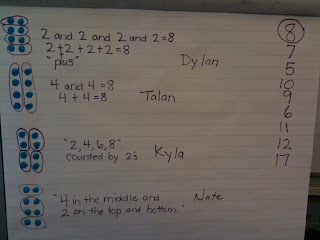 2 and 2 and 2 and 2 = 8
2 + 2 + 2 + 2 = 8
"plus"
Dylan
4 and 4 = 8
4 + 4 = 8
Talan
"2, 4, 6, 8"
counted by 2's.
Kyla
"4 in the middle and
2 on the top and bottom."
Nate
8
7
5
10
9
6
11
12
17